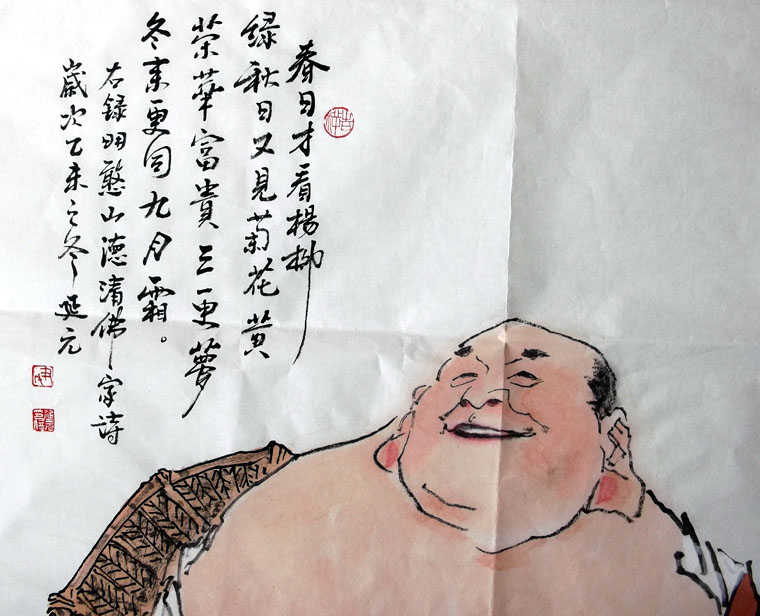 春日才看楊柳
緑秋日又見菊花黄
榮華富貴三更夢
冬来更同九月霜。
右録明憨山德清佛家詩
歲次乙未之冬延元
吉祥